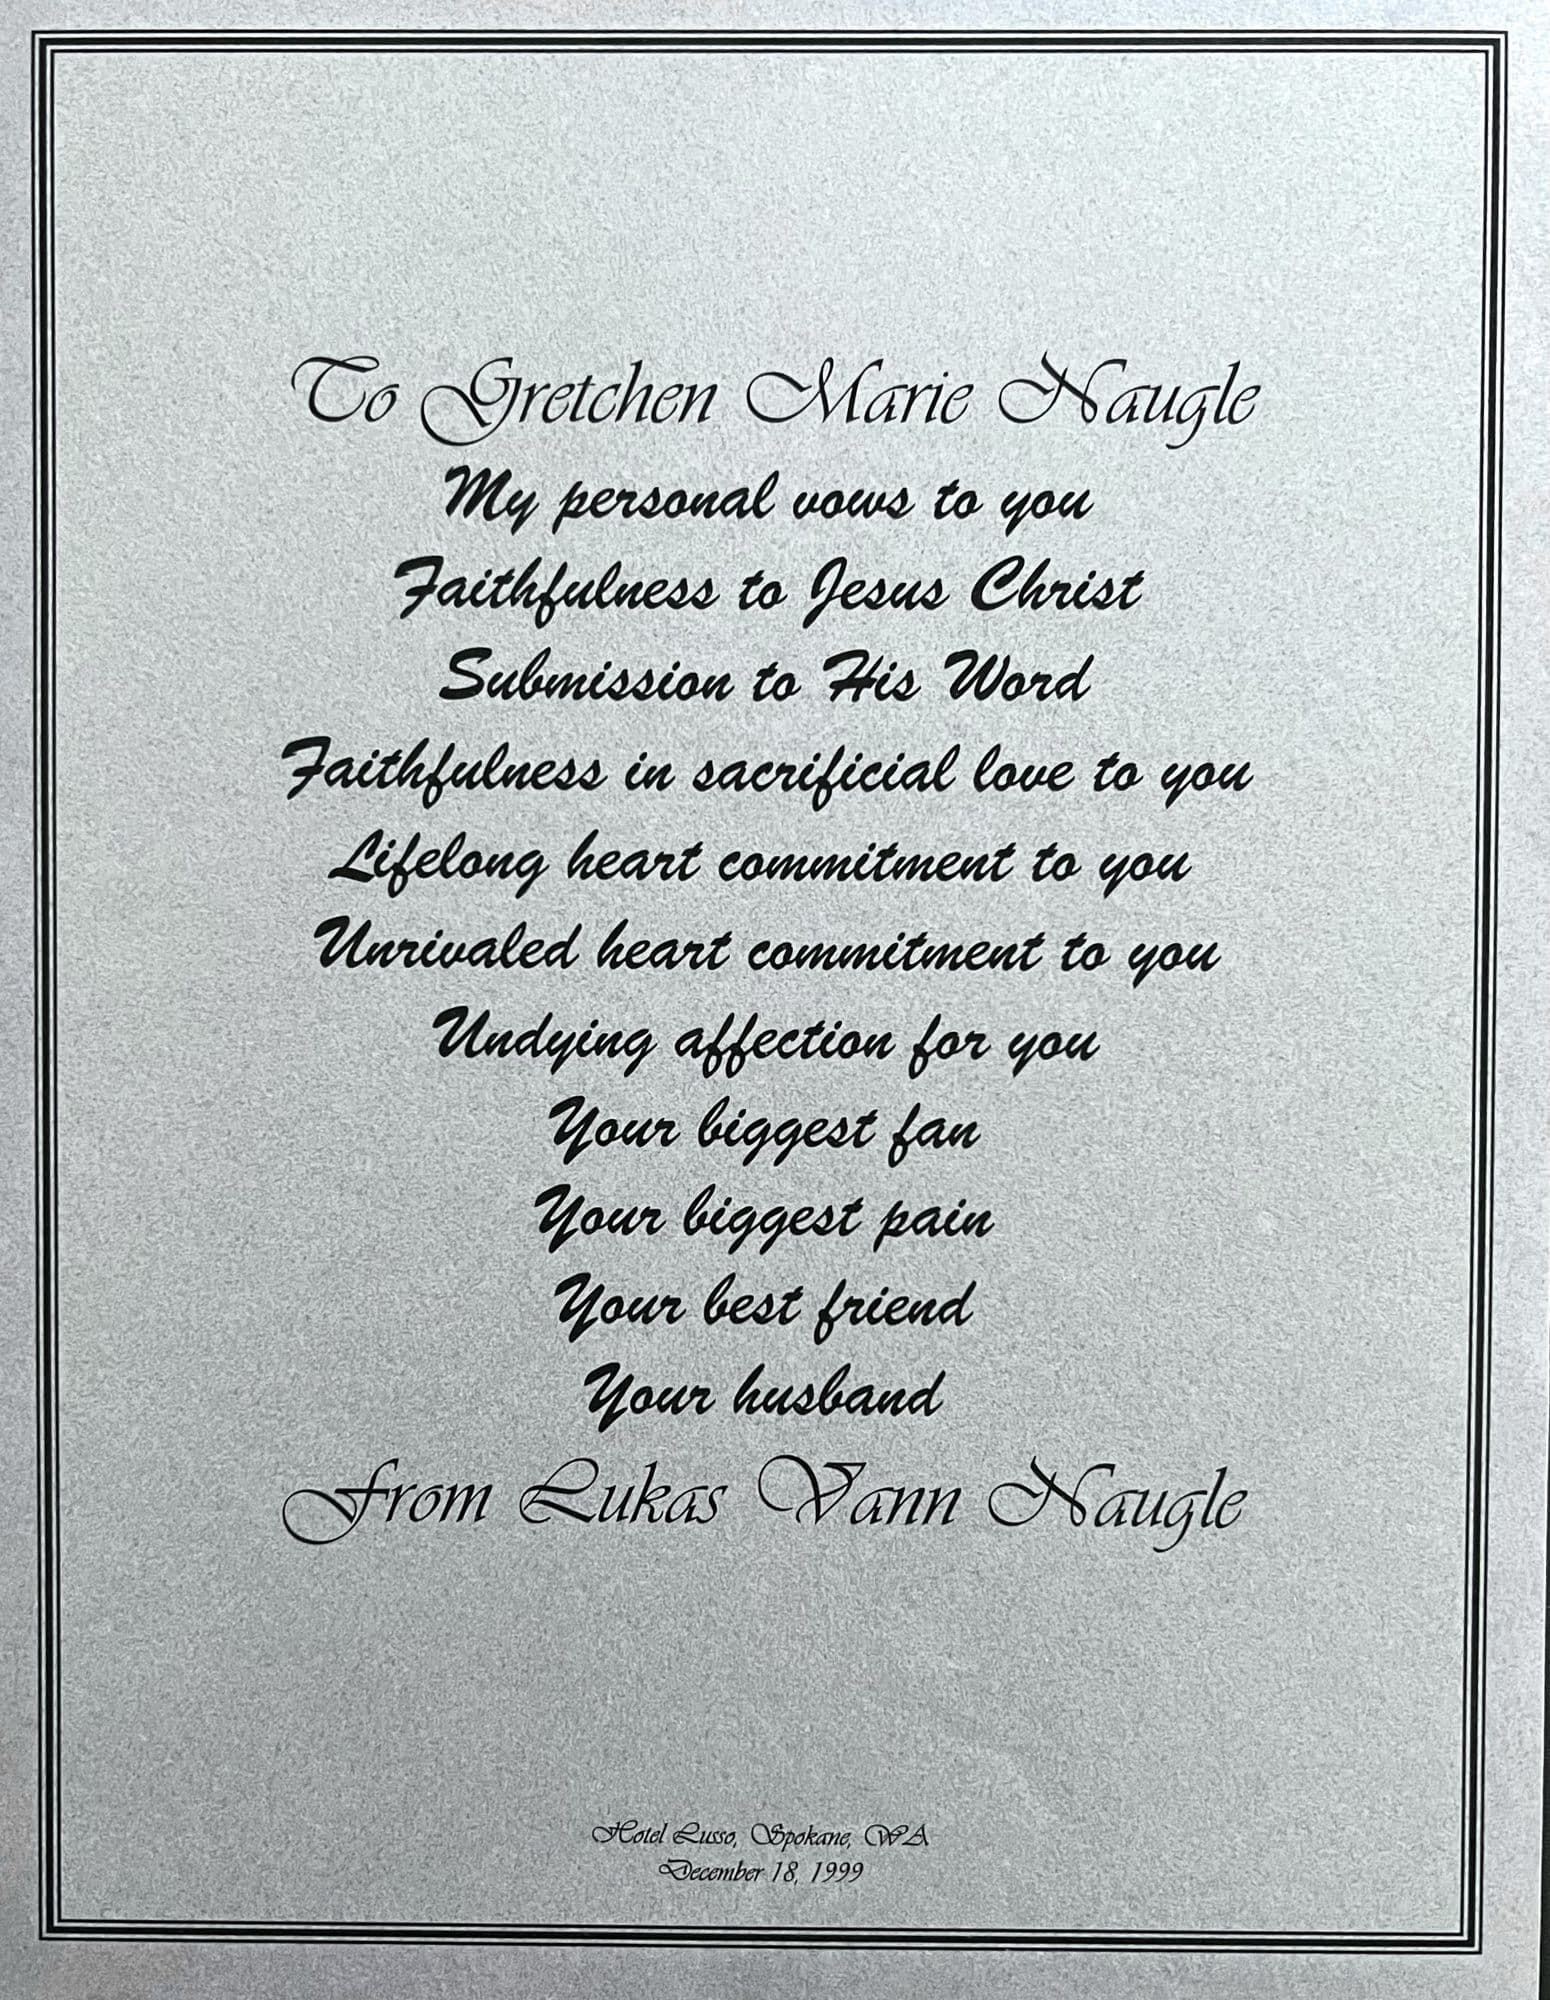 To Gretchen Marie Naugle
My personal vows to you
Faithfulness to Jesus Christ
Submission to His Word
Faithfulness in sacrificial love to you
Lifelong heart commitment to you
Unrivaled heart commitment to you
Undying affection for you
Your biggest fan
Your biggest pain
Your best friend
Your husband
From Lukas Vann Naugle
Hotel Lusso, Spokane, WA
December 18, 1999